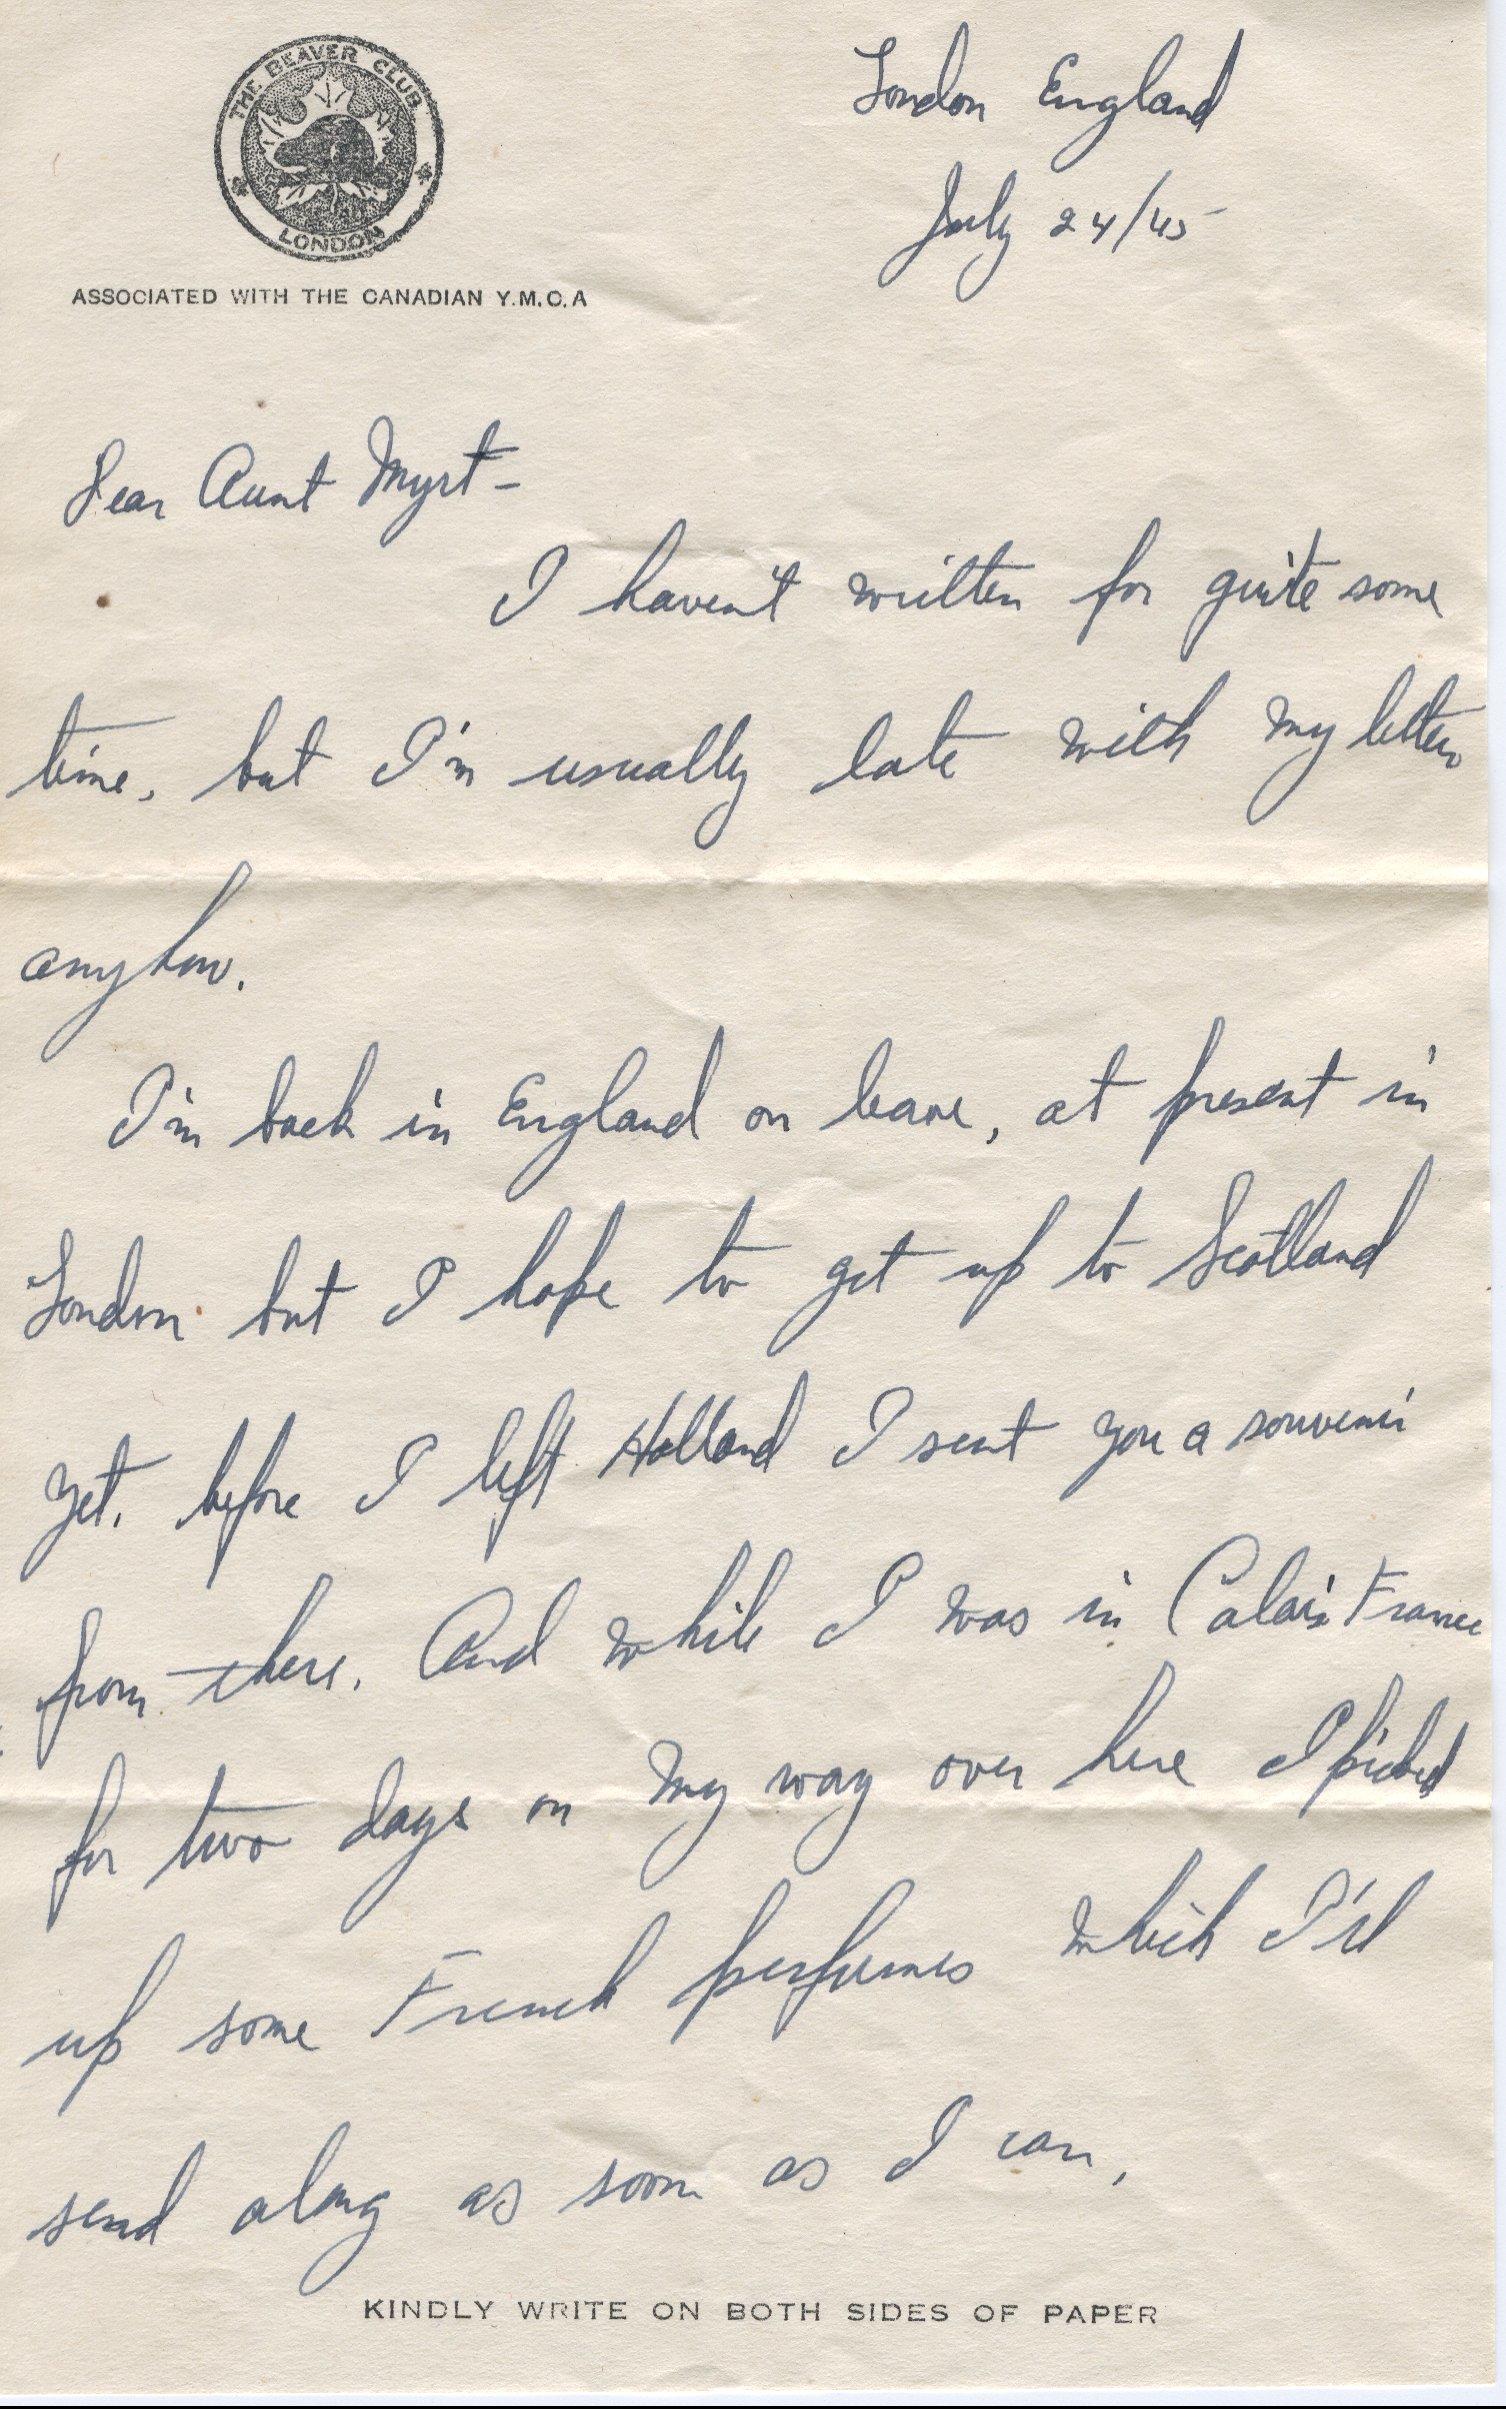 THE BEAVER CLUB
LONDON
ASSOCIATED WITH THE CANADIAN Y.M.C.A
London England
July 24/45
Dear Aunt Myrt -
I haven't written for quite some
time, but I'm usually late with my letters
anyhow.
I'm back in England on leave, at present in
London but I hope to get up to Scotland
yet. before I left Holland I sent you a souvenir
from there. And while I was in Calais France
for two days on my way over here I picked
up some French perfumes which I'll
send along as soon as I can,
KINDLY WRITE ON BOTH SIDES OF PAPER